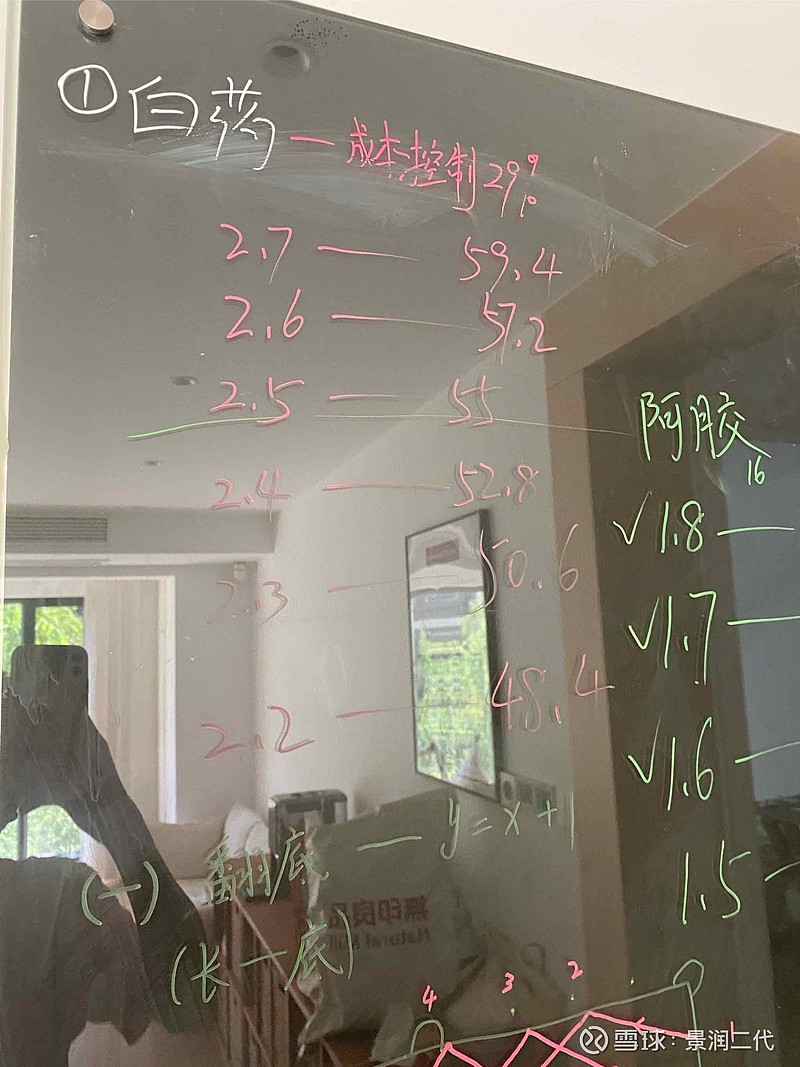 ①白药—成本控制29%
2.7 — 59.4
2.6 — 57.2
2.5 — 55
2.4 — 52.8
2.3 — 50.6
2.2 — 48.4
阿胶
16
√1.8 —
√1.7 —
√1.6 —
1.5 —
(一) 翻底 — y=x+1
(长一底)
4 3 2 1
無印良品
Natural
雪球：景润二代